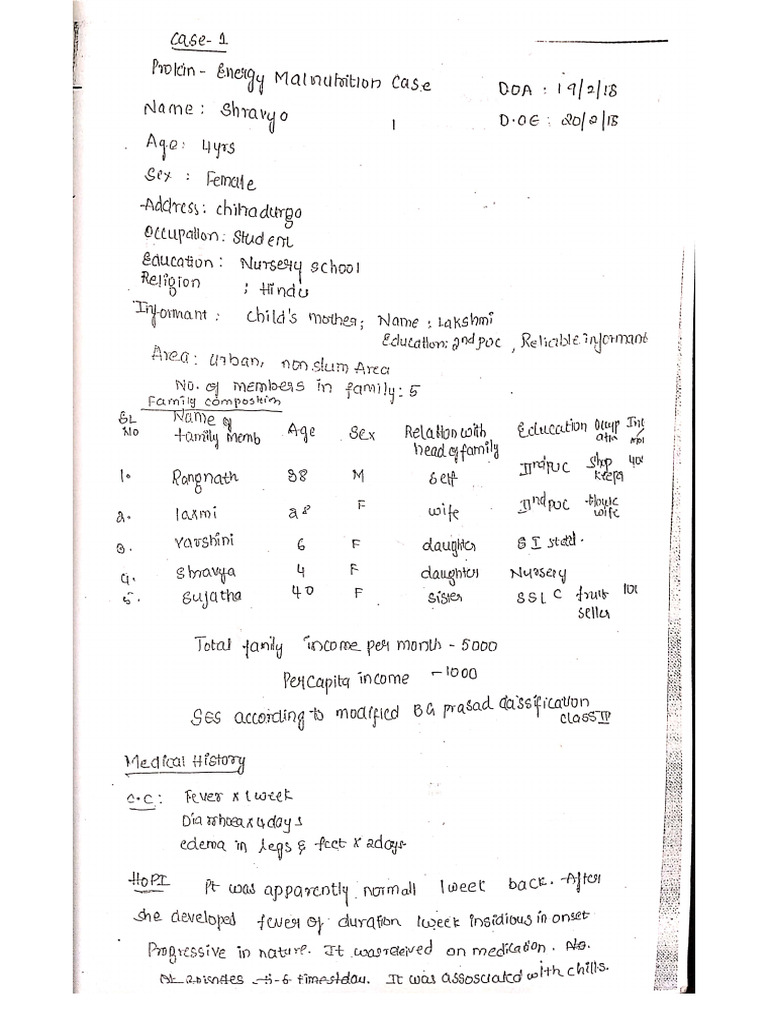 Case-1
Protein-Energy Malnutrition Case
DOA : 19/2/18
Name: Shravya
1
D.OE: 20/2/18
Age: 4yrs
Sex : Female
Address: chitradurga
Occupation: Student
Education: Nursery school
Religion : Hindu
Informant: child's mother; Name: Lakshmi
Education: 2nd PUC, Reliable informant
Area: urban, non slum Area
No. of members in family: 5
Family composition
SL No Name of family memb Age Sex Relation with head of family Education Occupation
1. Rangnath 38 M Self IInd PUC Shop keeper
2. laxmi 28 F wife IInd PUC House wife
3. Varshini 6 F daughter Std.
4. Shravya 4 F daughter Nursery
5. Sujatha 40 F Sister SSLC fruit seller
Total family income per month - 5000
Percapita income - 1000
SES according to modified BG prasad classification
class IV
Medical History
C.C: Fever x 1 week
Diarrhoea x 4 days
edema in legs & feet x 2days
HOPI Pt was apparently normall 1week back. After
she developed fever of duration 1week insidious in onset
Progressive in nature. It was releived on medication. No.
of episodes -5-6 times/day. It was assosciated with chills.